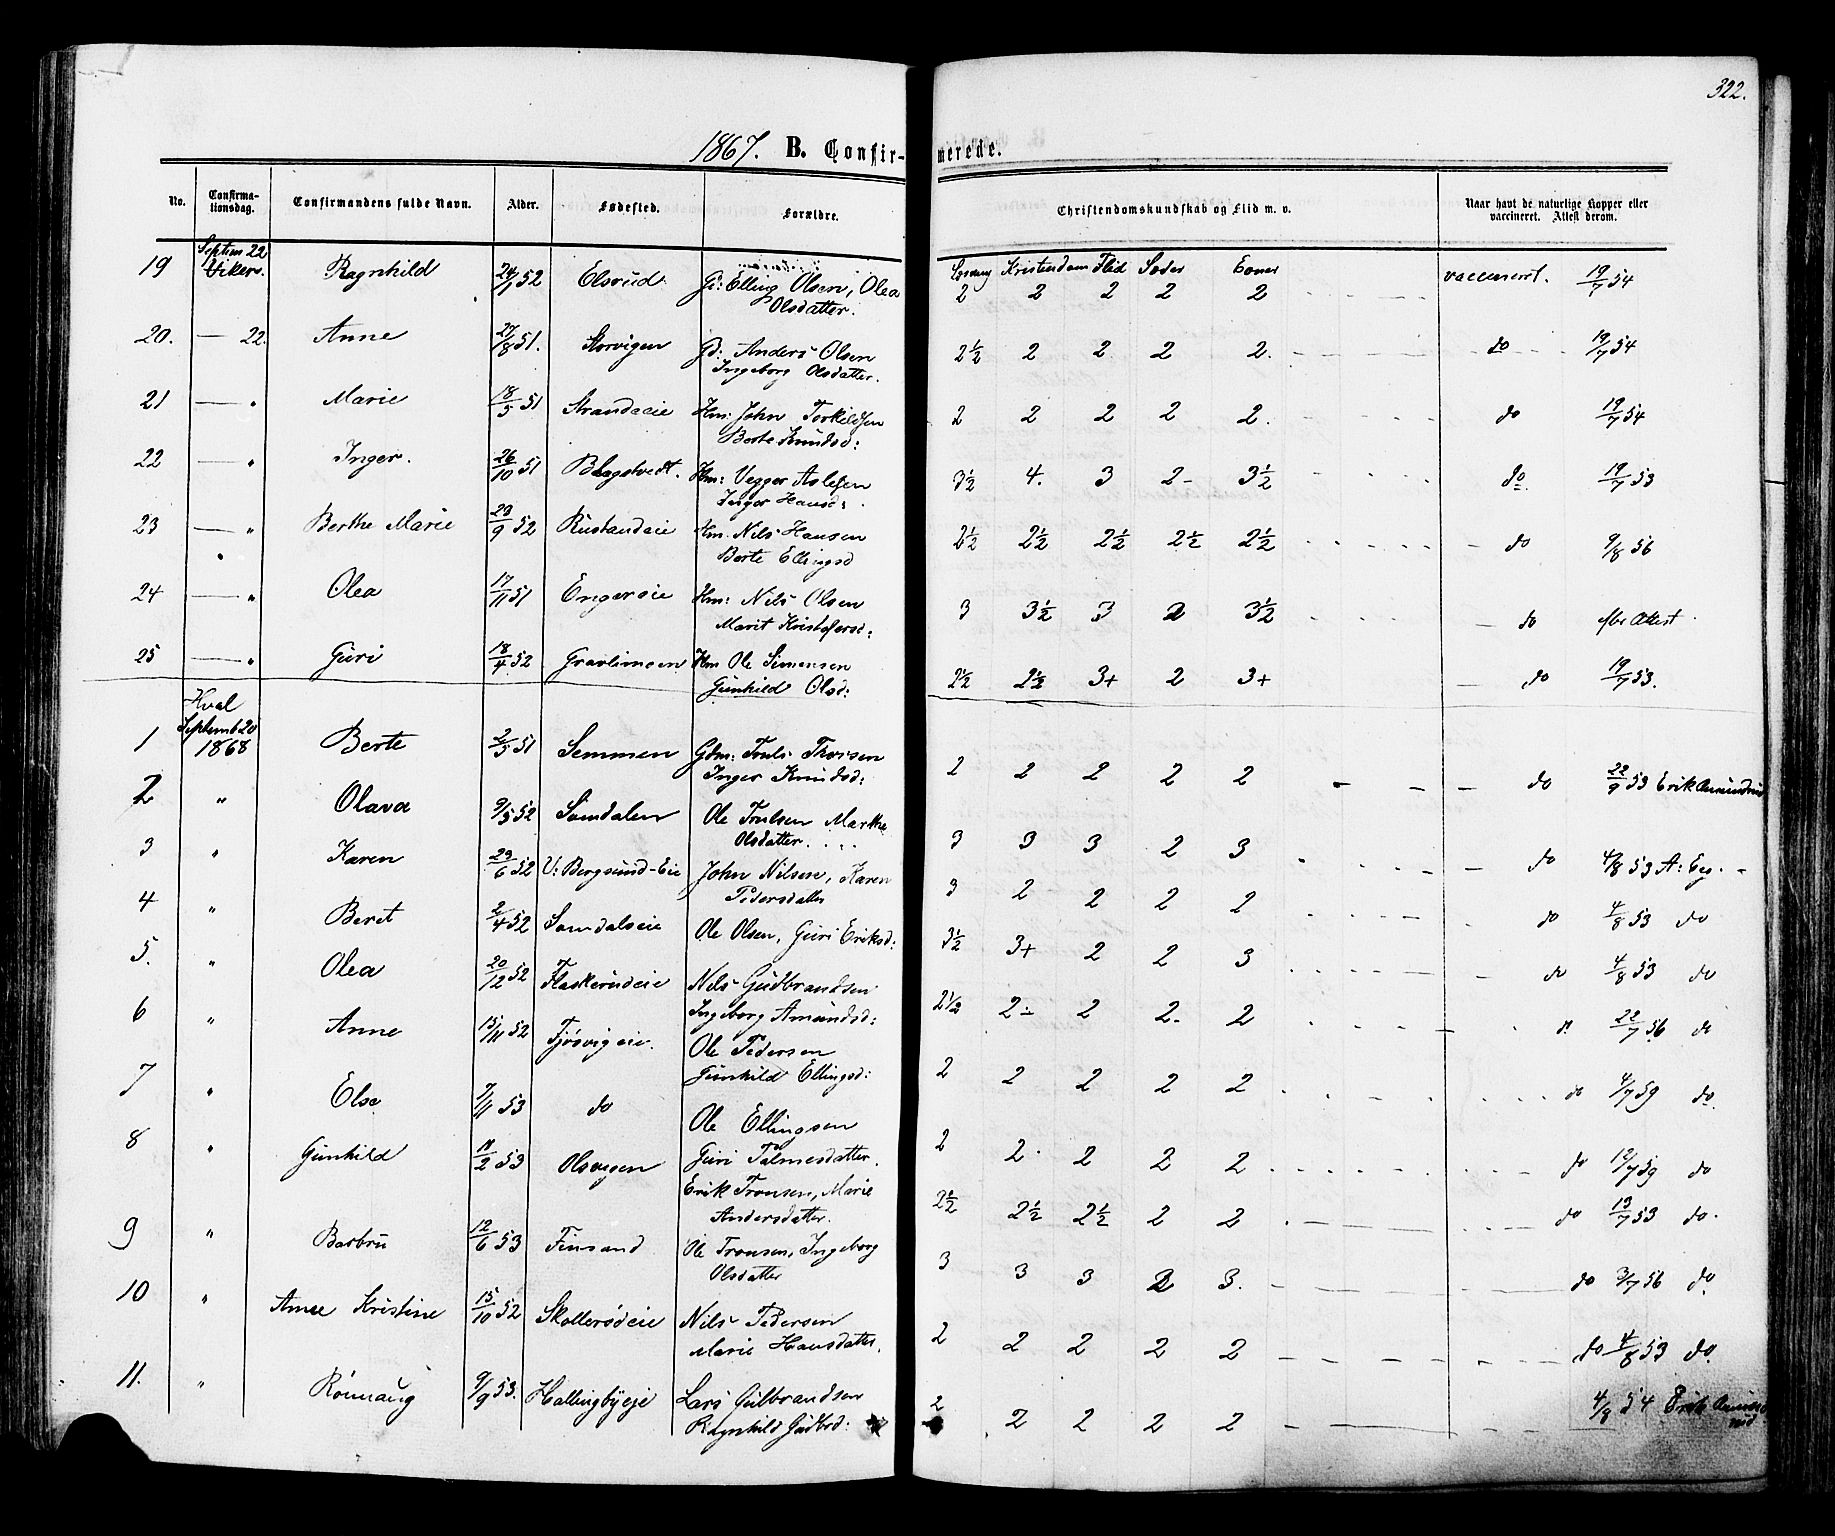 322.
1867. B. Confirmerede.
No. Confirmationsdag. Confirmandens fulde Navn. Alder. Fødested. Forældre. Christendomskundskab og Flid m. v. Naar havt de naturlige Kopper eller vaccineret. Attest derom.
Septem 22
19 Vikers. Ragnhild 24/1 52 Elsrud G: Elling Olsen, Olea Kristendom Flid Sæder Evner vaccineret. 19/7 54
Olsdatter. 2 2 2 2 2
20. — 22. Anne 27/8 51. Storvigen Gd: Anders Olsen 2½ 2 2 2 2. do 19/7 54
Ingeborg Olsdatter.
21 — " Marie 18/5 51 Strandeeie Hm: John Torkildsen 2 2 2 2 2. do 19/7 54
Berte Knudsd:
22 — " Inger. 26/10 51 Blagstvedt. Hm: Vegger Aslesen 3½ 4. 3 2- 3½ do 19/7 53
Inger Hansd:
23 — " Berthe Marie 23/9 52 Rustandeie Hm. Nils Hansen 2½ 2½ 2½ 2½ 2½ do 9/8 56
Berte Ellingsd
24 — " Olea 17/11 51 Engereie Hm: Nils Olsen 3 3½ 3 2 3½ do Attest
Marit Kristofersd:
25 — " Guri 18/4 52 Gravlimoen Hm Ole Simensen 2½ 2½ 3+ 2 3+ do 19/7 53.
Gunhild Olsd:
Hval
Septemb 20
1 1868 Berte 2/5 51 Semmen Gdm: Truls Thorsen 2 2 2 2 2 do 22/9 53 Erik Amundrud
Inger Knudsd:
2 " Olava 9/5 52 Somdalen Ole Trulsen Marthe 3 3 3 2 3 do 4/8 53 A: Eg.
Olsdatter
3 " Karen 23/6 52 U: Bergsund-Eie John Nilsen, Karen 3 2 2 2 2 do 4/8 53 do
Pedersdatter
4 " Beret 2/4 52 Somdalseie Ole Olsen, Guri Eriksd: 3½ 3+ 2 2 3 do 4/8 53 do
5. " Olea 20/12 52 Flaskerudeie Nils Gudbrandsen 2½ 2- 2 2- 2 do 22/7 56 do
Ingeborg Amundsd:
6 " Anne 15/11 52 Tjøsvigeie. Ole Pedersen 2 2 2 2 2 do 4/7 59 do.
Gunhild Ellingsd:
7 " Else 7/11 53 do Ole Ellingsen 2 2. 2 2 2 do 12/7 59 do
Guri Palmesdatter.
8 " Gunhild 11/2 53 Olsvigen Erik Tronsen, Marie 2½ 2½ 2½ 2 2 do 13/7 53 do.
Andersdatter.
9 " Barbru 12/6 53 Finsand Ole Tronsen, Ingeborg 3 3 3 2 3. do 3/7 56 do.
Olsdatter
10 " Anne Kristine 15/10 52 Skollerødeie Nils Pedersen 2 2 2 2 2 do 4/8 53 do.
Marie Hansdatter.
11. " Rønnaug 9/9 53. Hallingbyeje Lars Gulbrandsen 2 2 2 2 2 4/8 54 Erik Amundrud
Ragnhild Gudbrd: